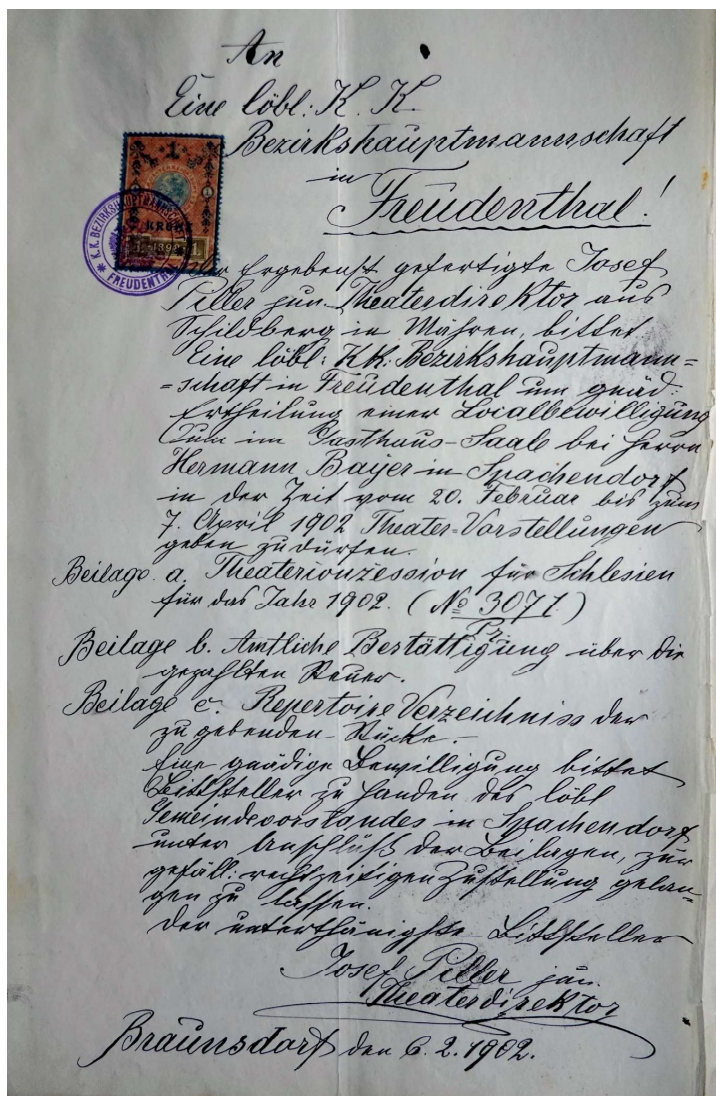 An
Eine löbl: K. K.
Bezirkshauptmannschaft
in
Freudenthal!
1
KRONE
1898
K. K. BEZIRKSHAUPTMANNSCHAFT
* FREUDENTHAL *
Der Ergebenst gefertigte Josef
Piller jun. Theaterdirektor aus
Schildberg in Mähren, bittet
Eine löbl: K.K. Bezirkshauptmann=
=schaft in Freudenthal um gnäd:
Ertheilung einer Localbewilligung
Zum im Gasthaus-Saale bei Herrn
Hermann Bayer in Spachendorf
in der Zeit vom 20. Februar bis zum
7. April 1902 Theater-Vorstellungen
geben zu dürfen.
Beilage a. Theaterconzession für Schlesien
für das Jahr 1902. (No 3071)
Pr.
Beilage b. Amtliche Bestättigung über die
gezahlten Steuer.
Beilage c. Repertoire Verzeichniss der
zu gebenden Stücke.
Eine gnädige Bewilligung bittet
Bittsteller zu Handen des löbl
Gemeindevorstandes in Spachendorf
unter Anschluß der Beilagen, zur
gefäll: rechtzeitigen Zustellung gelan=
gen zu lassen.
Der unterthänigste Bittsteller
Josef Piller jun.
Theaterdirektor
Braunsdorf den 6. 2. 1902.